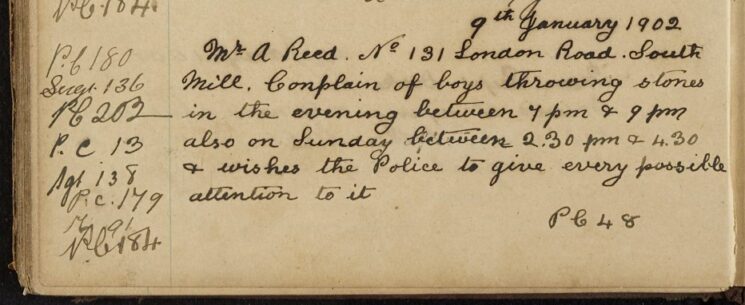 P.C. 184
9th January 1902
P.C 180
Mr A Reed. No 131 London Road. South
Sergt. 136
Mill. Conplain of boys throwing stones
PC 203
in the evening between 7 pm & 9 pm
P.C 13
also on Sunday between 2.30 pm & 4.30
Sgt 138
& wishes the Police to give every possible
P.C. 179
attention to it
91
PC 48
PC 184